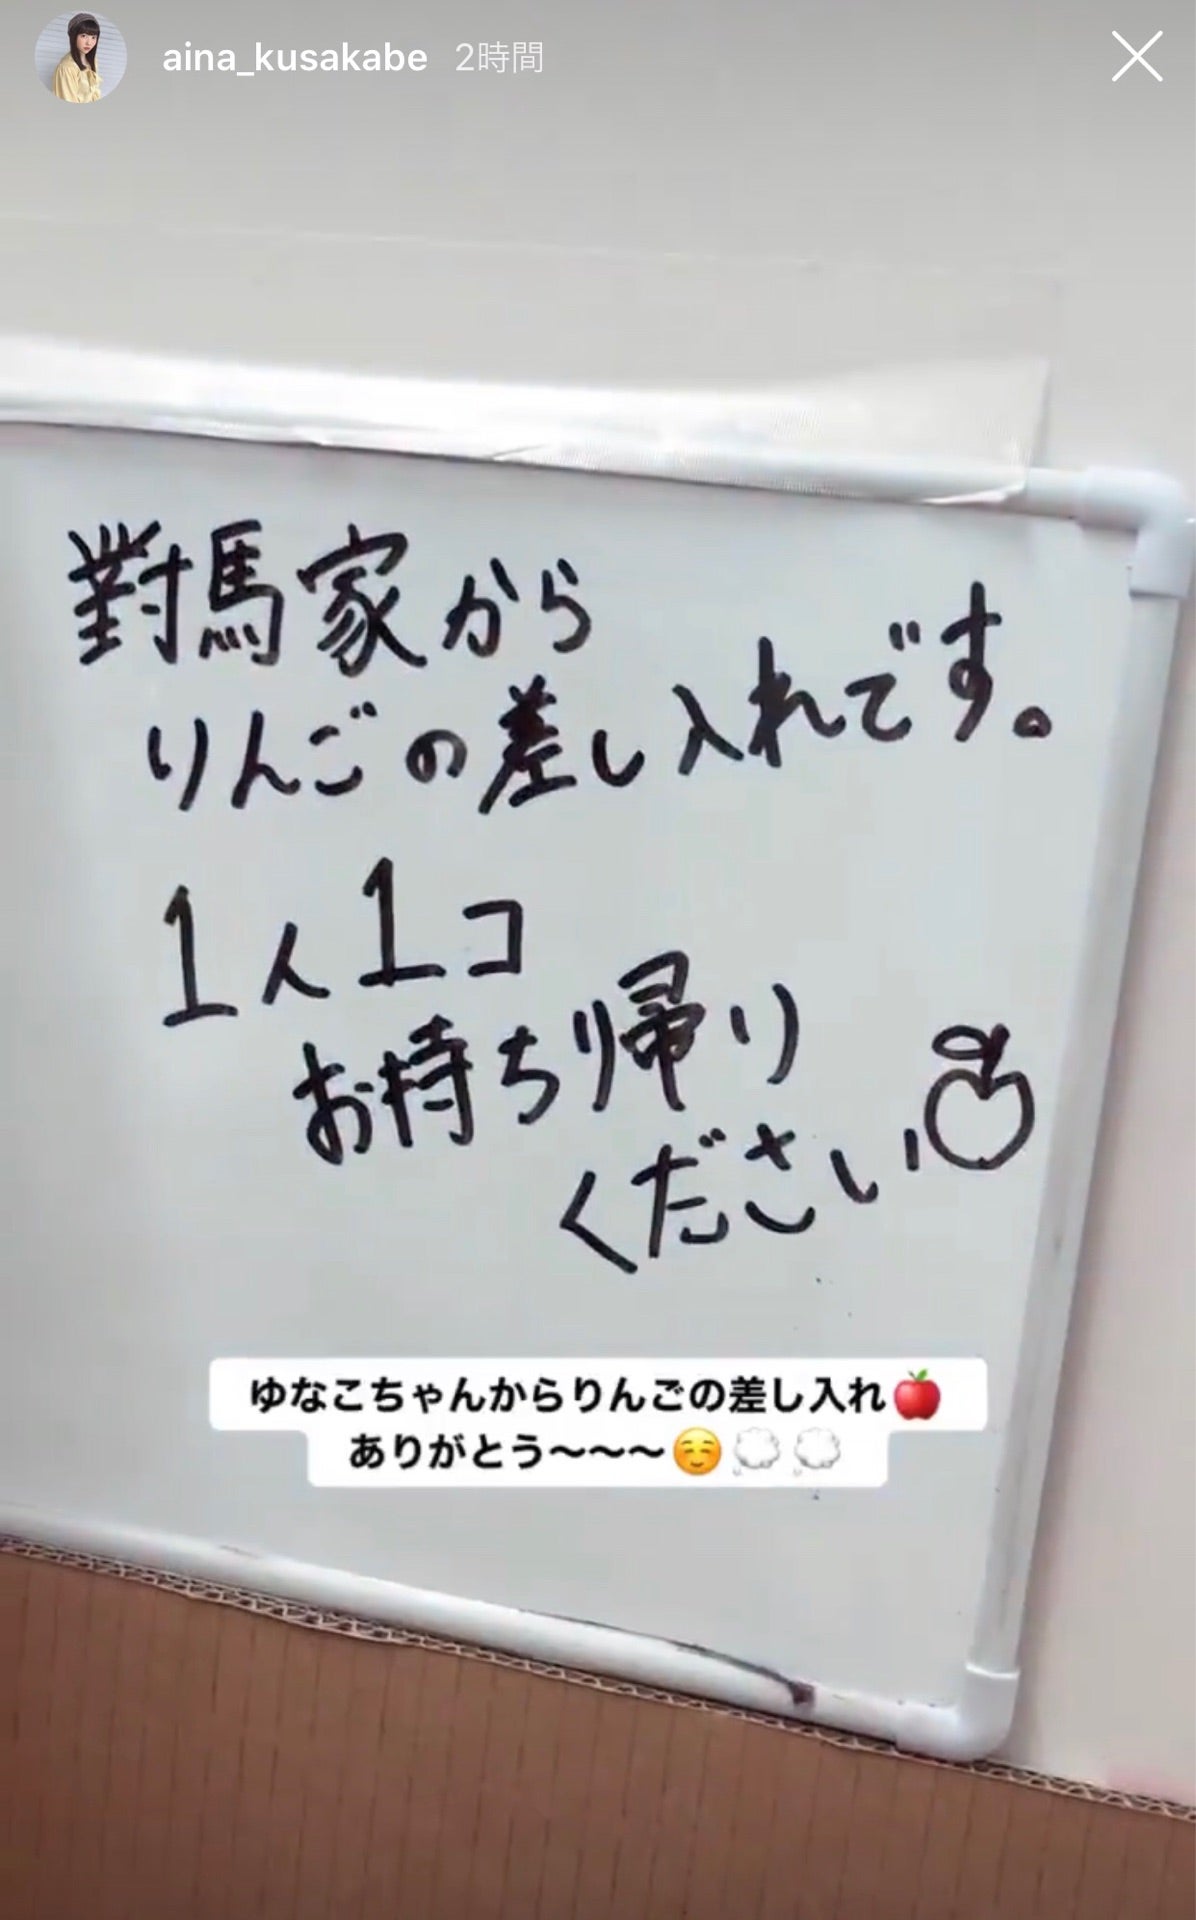 aina_kusakabe 2時間
對馬家から
りんごの差し入れです。
1人1コ
お持ち帰り
ください
ゆなこちゃんからりんごの差し入れ🍎
ありがとう〜〜〜☺️💭💭